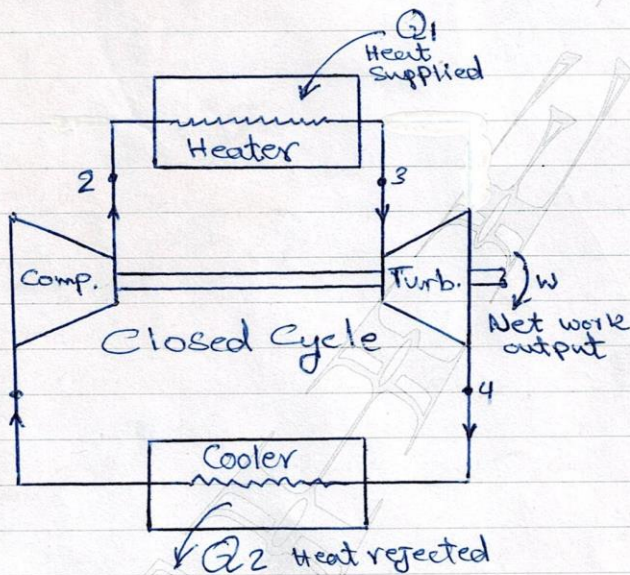 Q1
Heat
Supplied
Heater
2
3
Comp.
Turb.
W
Net work
output
Closed Cycle
4
Cooler
Q2 Heat rejected